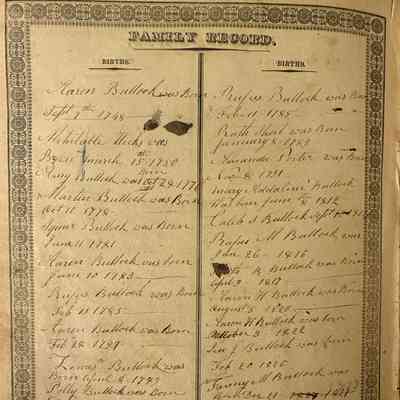 FAMILY RECORD.
BIRTHS.
Aaron Bullock was Born
Sept 7th 1748
Mehitable Hicks was
Born March 15th 1750
Amy Bullock was Born Oct 24 1776
Martin Bullock was Born
Oct 11 1778
Squier Bullock was Born
June 11 1781
Aaron Bullock was Born
June 10 1783
Rufus Bullock was Born
Feb 11 1785
Aaron Bullock was Born
Feb 28
Bullock was
Born April 8
Polly Bullock was Born
BIRTHS.
Rufus Bullock was Born
Feb 11 1785
was Born
January 8
Porter was Born
Nov 8 1791
Mary Bullock
Was born June 1812
Caleb S Bullock Sept
Rufus M Bullock was
Jan 26 - 1816
Bullock was Born
April 1817
Aaron W Bullock was Born
August 3 1820
Aaron W Bullock was born
October 3 1822
J Bullock was born
Feb 20
Fanny M Bullock was